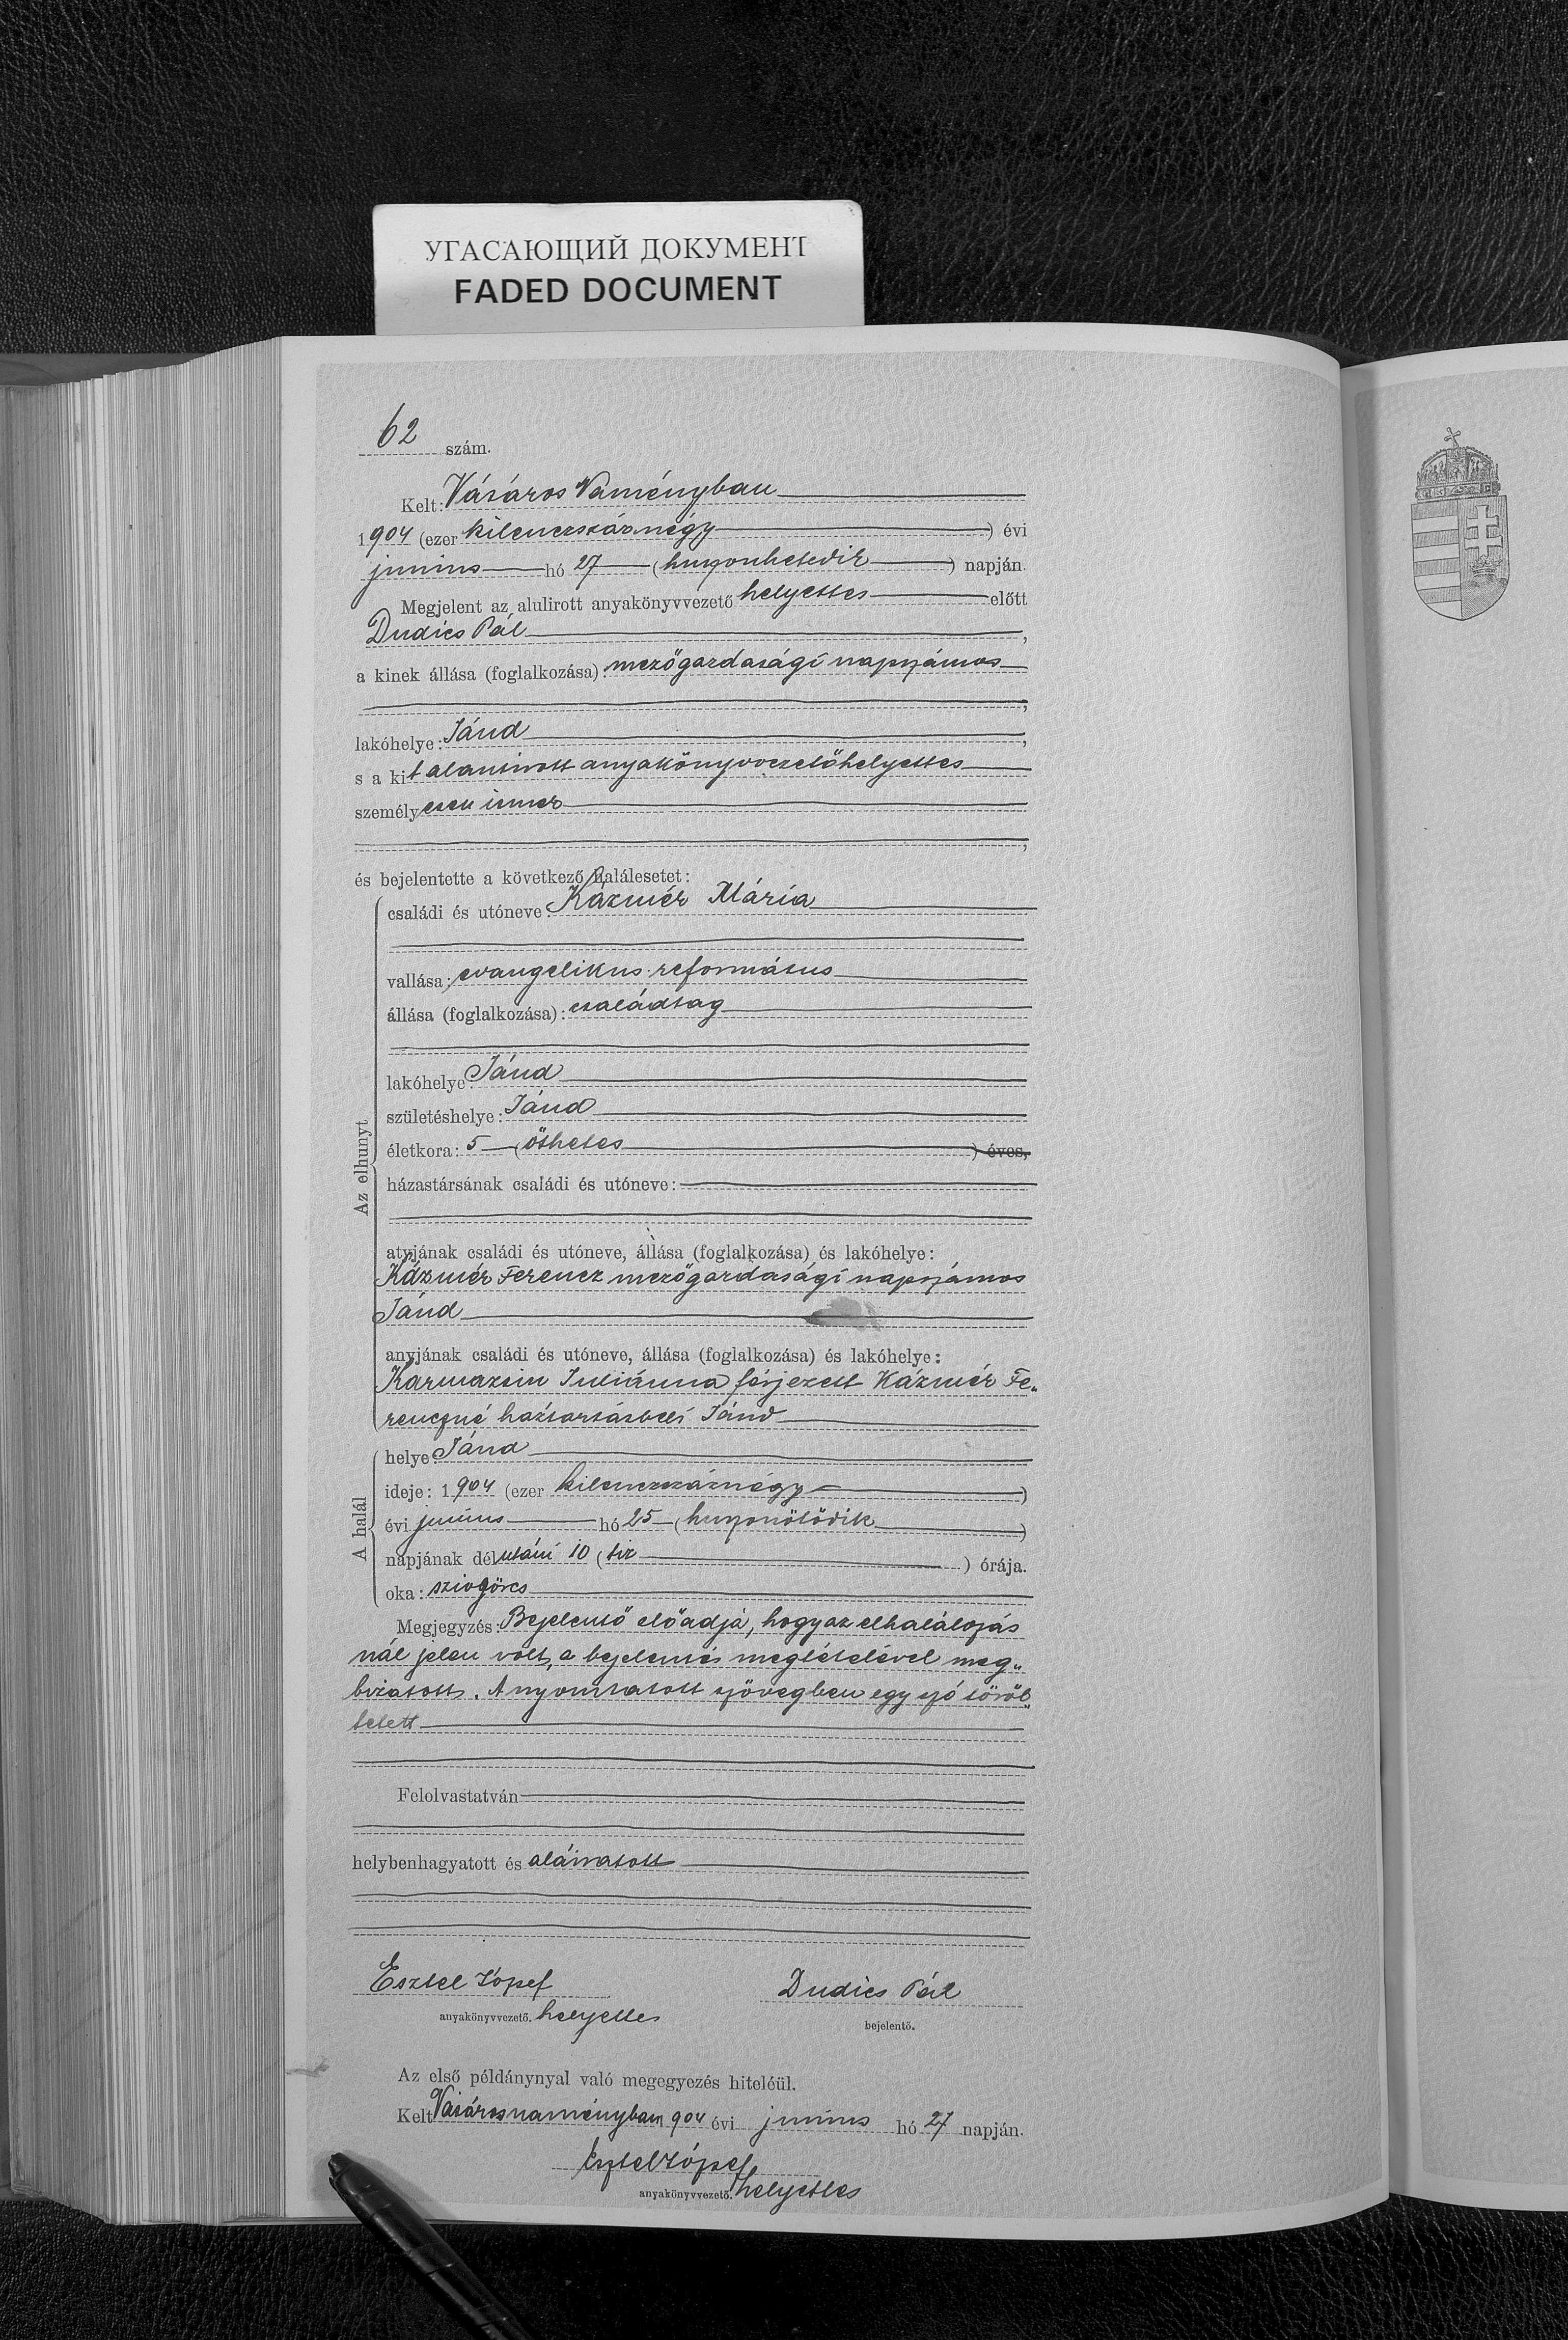 УГАСАЮЩИЙ ДОКУМЕНТ
FADED DOCUMENT
62 szám.
Kelt: Vásáros Naményban
1904 (ezer kilenczszáznégy) évi
junius hó 27 (huszonhetedik) napján.
Megjelent az alulirott anyakönyvvezető helyettes előtt
Dudics Pál,
a kinek állása (foglalkozása): mezőgazdasági napszámos
,
lakóhelye: Jánd,
s a kit alantirott anyakönyvvezetőhelyettes
személyesen ismer
,
és bejelentette a következő halálesetet:
Az elhunyt
családi és utóneve: Kázmér Mária
vallása: evangelikus református
állása (foglalkozása): családtag
lakóhelye: Jánd
születéshelye: Jánd
életkora: 5 (öthetes) éves,
házastársának családi és utóneve:
atyjának családi és utóneve, állása (foglalkozása) és lakóhelye:
Kázmér Ferencz mezőgazdasági napszámos
Jánd
anyjának családi és utóneve, állása (foglalkozása) és lakóhelye:
Karmazsin Juliánna férjezett Kázmér Fe„
renczné háztartásbeli Jánd
A halál
helye: Jánd
ideje: 1904 (ezer kilenczszáznégy)
évi junius hó 25 (huszonötödik)
napjának délutáni 10 (tiz) órája.
oka: szivgörcs
Megjegyzés: Bejelentő előadja, hogy az elhalálozás
nál jelen volt, a bejelentés megtételével meg„
bizatott. A nyomtatott szövegben egy szó töröl„
tetett
Felolvastatván
helybenhagyatott és aláiratott
Esztel József
anyakönyvvezető. helyettes
Dudics Pál
bejelentő.
Az első példánynyal való megegyezés hiteléül.
Kelt Vásárosnaményban 904 évi junius hó 27 napján.
Esztel József
anyakönyvvezető. helyettes